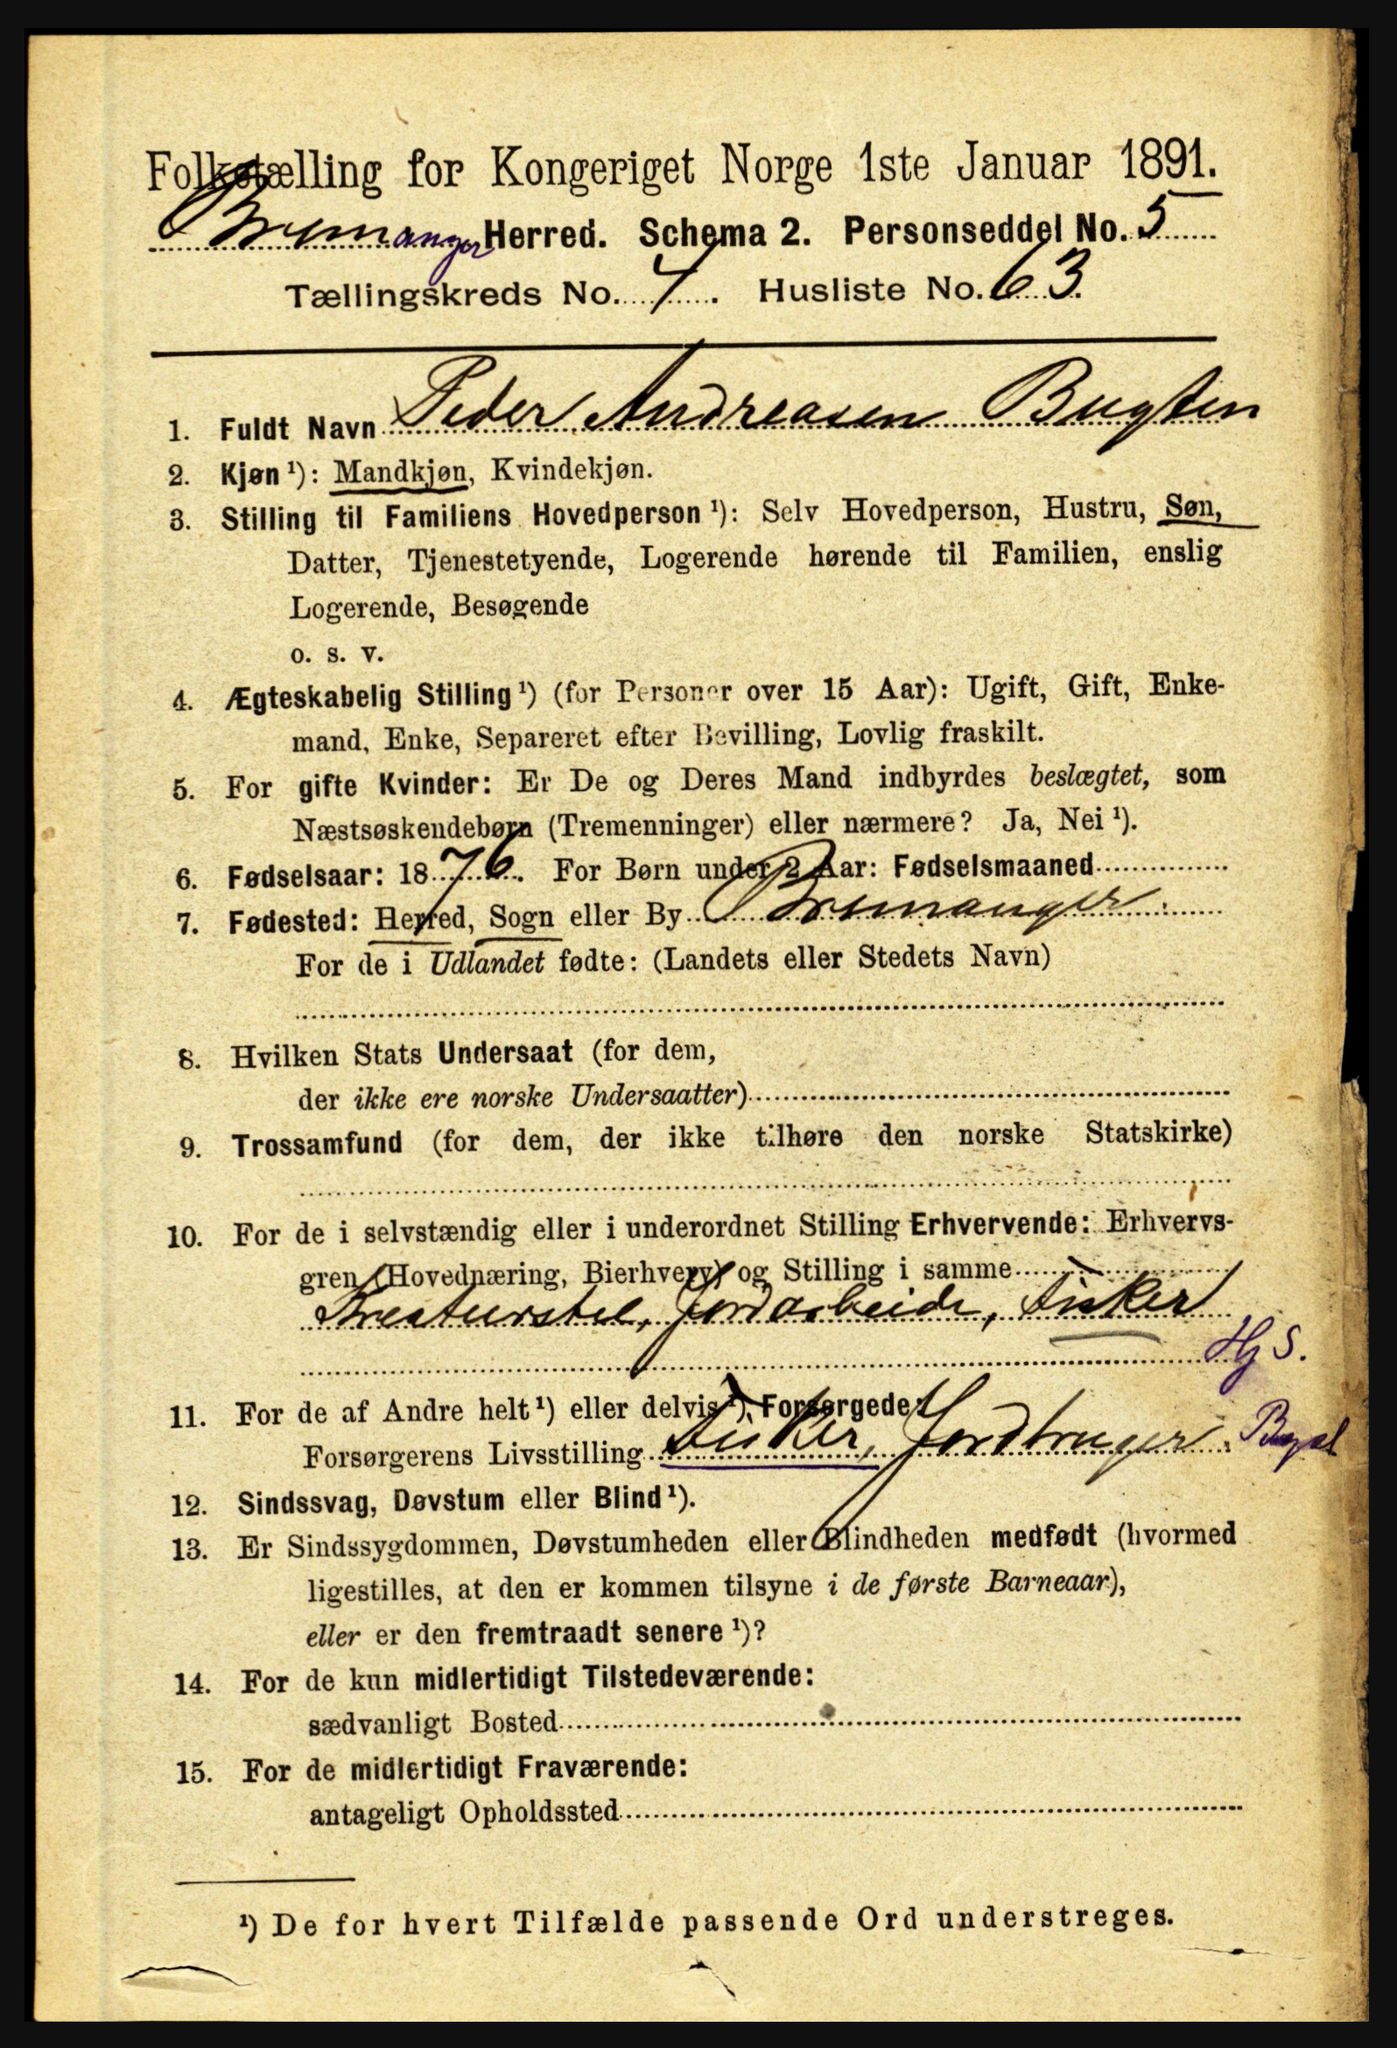 Folketælling for Kongeriget Norge 1ste Januar 1891.
Bremanger Herred. Schema 2. Personseddel No. 5
Tællingskreds No. 4. Husliste No. 63.
1. Fuldt Navn Peder Andreasen Bugten
2. Kjøn ¹): Mandkjøn, Kvindekjøn.
3. Stilling til Familiens Hovedperson ¹): Selv Hovedperson, Hustru, Søn,
Datter, Tjenestetyende, Logerende hørende til Familien, enslig
Logerende, Besøgende
o. s. v.
4. Ægteskabelig Stilling ¹) (for Personer over 15 Aar): Ugift, Gift, Enke-
mand, Enke, Separeret efter Bevilling, Lovlig fraskilt.
5. For gifte Kvinder: Er De og Deres Mand indbyrdes beslægtet, som
Næstsøskendebørn (Tremenninger) eller nærmere? Ja, Nei ¹).
6. Fødselsaar: 1876. For Børn under 2 Aar: Fødselsmaaned
7. Fødested: Herred, Sogn eller By Bremanger.
For de i Udlandet fødte: (Landets eller Stedets Navn)
8. Hvilken Stats Undersaat (for dem,
der ikke ere norske Undersaatter)
9. Trossamfund (for dem, der ikke tilhøre den norske Statskirke)
10. For de i selvstændig eller i underordnet Stilling Erhvervende: Erhvervs-
gren (Hovednæring, Bierhverv) og Stilling i samme
Kreaturstel, Jordarbeide, Fisker
Hj S.
11. For de af Andre helt ¹) eller delvis ¹) Forsørgede:
Forsørgerens Livsstilling Fisker, Jordbruger.
12. Sindssvag, Døvstum eller Blind ¹).
13. Er Sindssygdommen, Døvstumheden eller Blindheden medfødt (hvormed
ligestilles, at den er kommen tilsyne i de første Barneaar),
eller er den fremtraadt senere ¹)?
14. For de kun midlertidigt Tilstedeværende:
sædvanligt Bosted
15. For de midlertidigt Fraværende:
antageligt Opholdssted
¹) De for hvert Tilfælde passende Ord understreges.